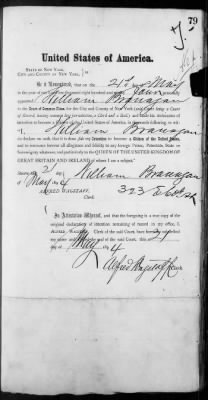 79
United States of America.
STATE OF NEW YORK,
CITY AND COUNTY OF NEW YORK,
Be it Remembered, that on the 21st day of May
in the year of our Lord one thousand eight hundred and
appeared William Branagan
the Court of Common Pleas, for the City and County of New York,
Record, having common law jurisdiction, a Clerk and a Seal,) and
intention to become a Citizen of the United States of America, in the following words, to wit:
I, William Branagan
do declare on oath, that it is bona fide my intention to become a Citizen of the United States,
and to renounce forever all allegiance and fidelity to any foreign Prince, Potentate, State or
Sovereignty whatever, and particularly to the QUEEN OF THE UNITED KINGDOM OF
GREAT BRITAIN AND IRELAND of whom I am a subject.
Sworn, this 21 day William Branagan
of May 4 323 E
ALFRED WAGSTAFF,
Clerk.
In Attestation Whereof, and that the foregoing is a true copy of the
original declaration of intention remaining of record in my office, I
ALFRED WAGSTAFF, Clerk of the said Court, have hereunto subscribed
my name and affixed the seal of the said Court, this 21
day of May 189 4
Alfred Wagstaff Clerk